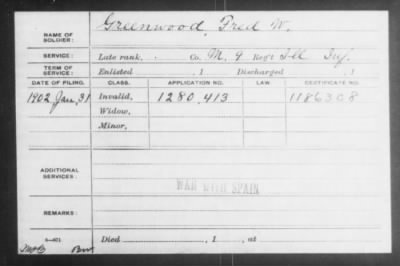 NAME OF SOLDIER: Greenwood, Fred W.
SERVICE: Late rank, Co. M, 9 Reg't Ill Inf.
TERM OF SERVICE: Enlisted , 1 Discharged , 1
DATE OF FILING. CLASS. APPLICATION NO. LAW. CERTIFICATE NO.
1902 Jan, 31 Invalid, 1280,413 1186308
Widow,
Minor,
ADDITIONAL SERVICES:
WAR WITH SPAIN
REMARKS:
Died , 1 , at
3—401